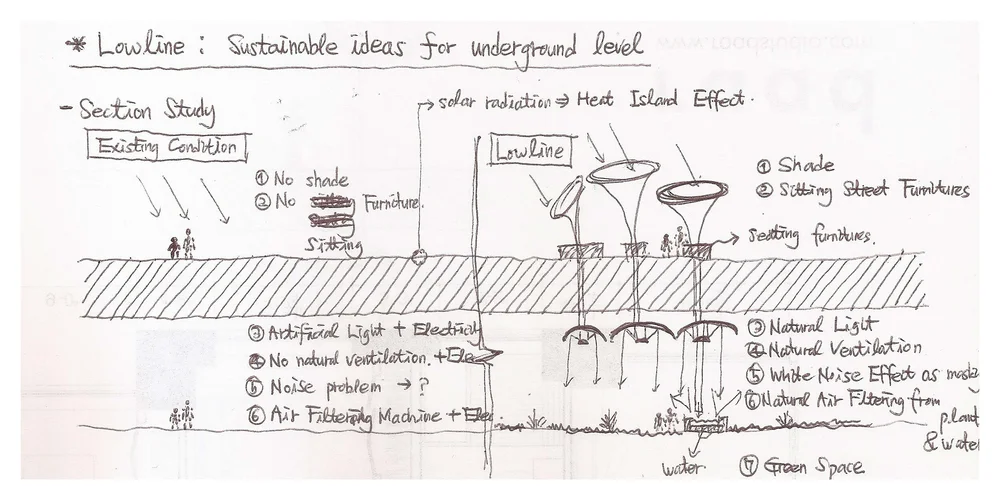 * Lowline : Sustainable ideas for underground level
- Section Study
→ solar radiation ⇒ Heat Island Effect.
Existing Condition
① No shade
② No Furniture.
Sitting
Lowline
① Shade
② Sitting Street Furnitures
→ seating furnitures.
③ Artificial Light + Electricity
④ No natural ventilation. + Ele
⑤ Noise problem → ?
⑥ Air Filtering Machine + Elec.
③ Natural Light
④ Natural Ventilation
⑤ White Noise Effect as
⑥ Natural Air Filtering from
plant
& water
water
⑦ Green Space